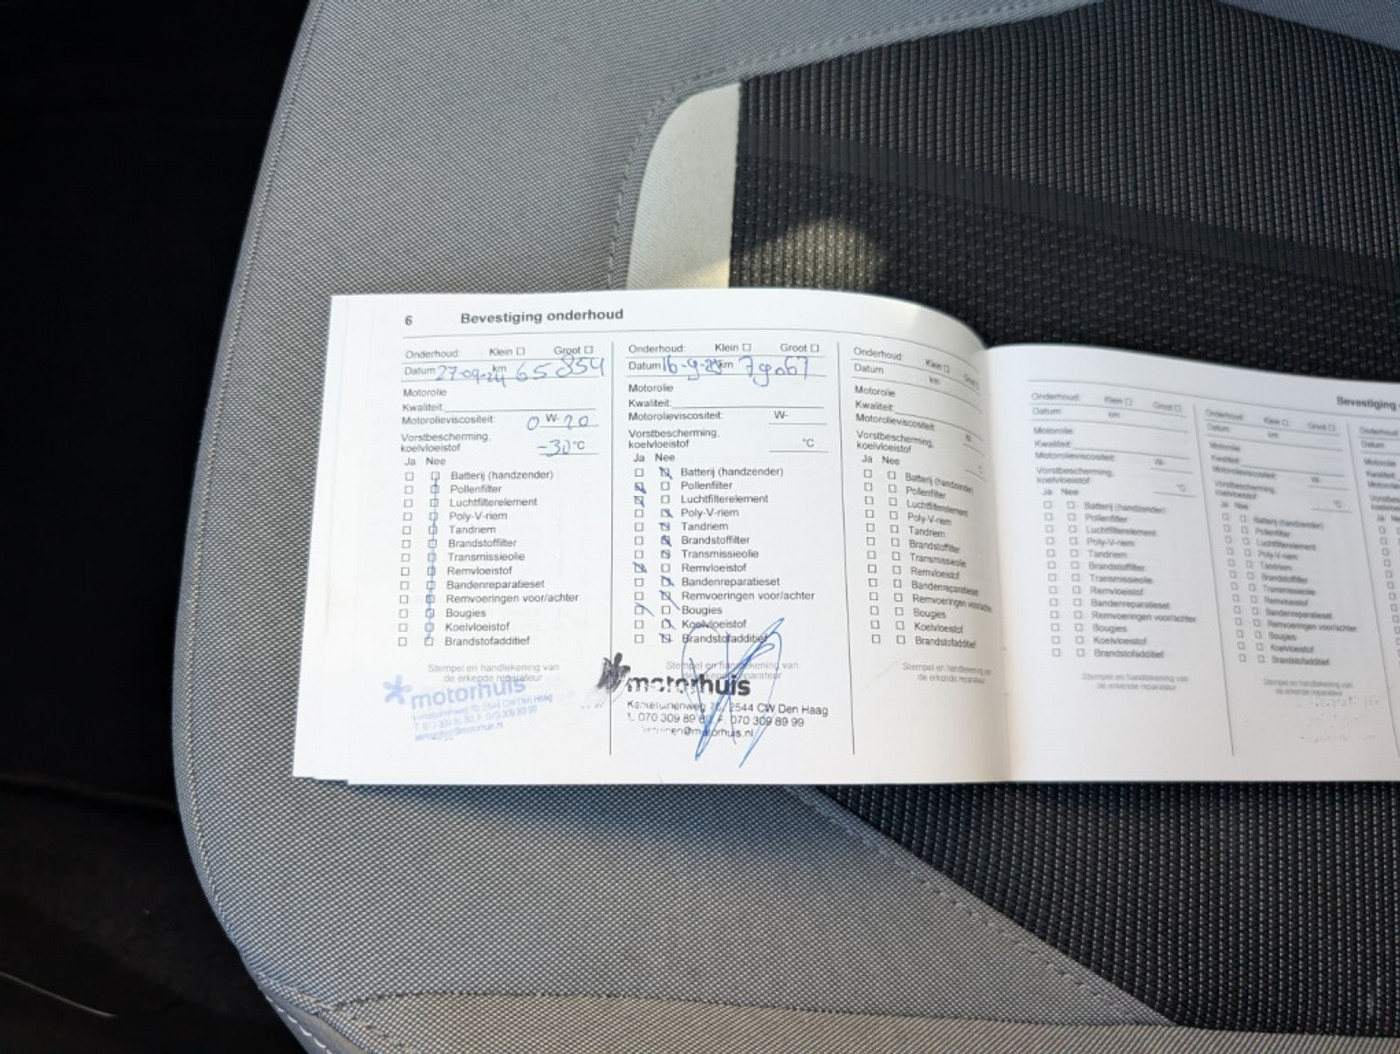 6 Bevestiging onderhoud
Onderhoud: Klein ☐ Groot ☐
Datum 27-09-24 km 65 854
Motorolie
Kwaliteit:
Motorolieviscositeit: 0 W- 20
Vorstbescherming,
koelvloeistof -30 °C
Ja Nee
Batterij (handzender)
Pollenfilter
Luchtfilterelement
Poly-V-riem
Tandriem
Brandstoffilter
Transmissieolie
Remvloeistof
Bandenreparatieset
Remvoeringen voor/achter
Bougies
Koelvloeistof
Brandstofadditief
Stempel en handtekening van
de erkende reparateur
motorhuis
Onderhoud: Klein ☐ Groot ☐
Datum 16-9-25 km 79067
Motorolie
Kwaliteit:
Motorolieviscositeit: W-
Vorstbescherming,
koelvloeistof °C
Ja Nee
Batterij (handzender)
Pollenfilter
Luchtfilterelement
Poly-V-riem
Tandriem
Brandstoffilter
Transmissieolie
Remvloeistof
Bandenreparatieset
Remvoeringen voor/achter
Bougies
Koelvloeistof
Brandstofadditief
Stempel en handtekening van
motorhuis
2544 CW Den Haag
T. 070 309 89 F. 070 309 89 99
@motorhuis.nl
Onderhoud: Klein ☐
Datum km
Motorolie
Kwaliteit:
Motorolieviscositeit:
Vorstbescherming,
koelvloeistof
Ja Nee
Batterij (handzender)
Pollenfilter
Luchtfilterelement
Poly-V-riem
Tandriem
Brandstoffilter
Transmissieolie
Remvloeistof
Bandenreparatieset
Remvoeringen voor/achter
Bougies
Koelvloeistof
Brandstofadditief
Stempel en handtekening van
de erkende reparateur
Bevestiging
Onderhoud: Klein ☐ Groot ☐
Datum km
Motorolie
Kwaliteit:
Motorolieviscositeit: W-
Vorstbescherming,
koelvloeistof °C
Ja Nee
Batterij (handzender)
Pollenfilter
Luchtfilterelement
Poly-V-riem
Tandriem
Brandstoffilter
Transmissieolie
Remvloeistof
Bandenreparatieset
Remvoeringen voor/achter
Bougies
Koelvloeistof
Brandstofadditief
Stempel en handtekening van
de erkende reparateur
Onderhoud: Klein ☐ Groot ☐
Datum km
Motorolie
Kwaliteit:
Motorolieviscositeit: W-
Vorstbescherming,
koelvloeistof °C
Ja Nee
Batterij (handzender)
Pollenfilter
Luchtfilterelement
Poly-V-riem
Tandriem
Brandstoffilter
Transmissieolie
Remvloeistof
Bandenreparatieset
Remvoeringen voor/achter
Bougies
Koelvloeistof
Brandstofadditief
Stempel en handtekening van
de erkende reparateur
Onderhoud:
Datum
Motorolie